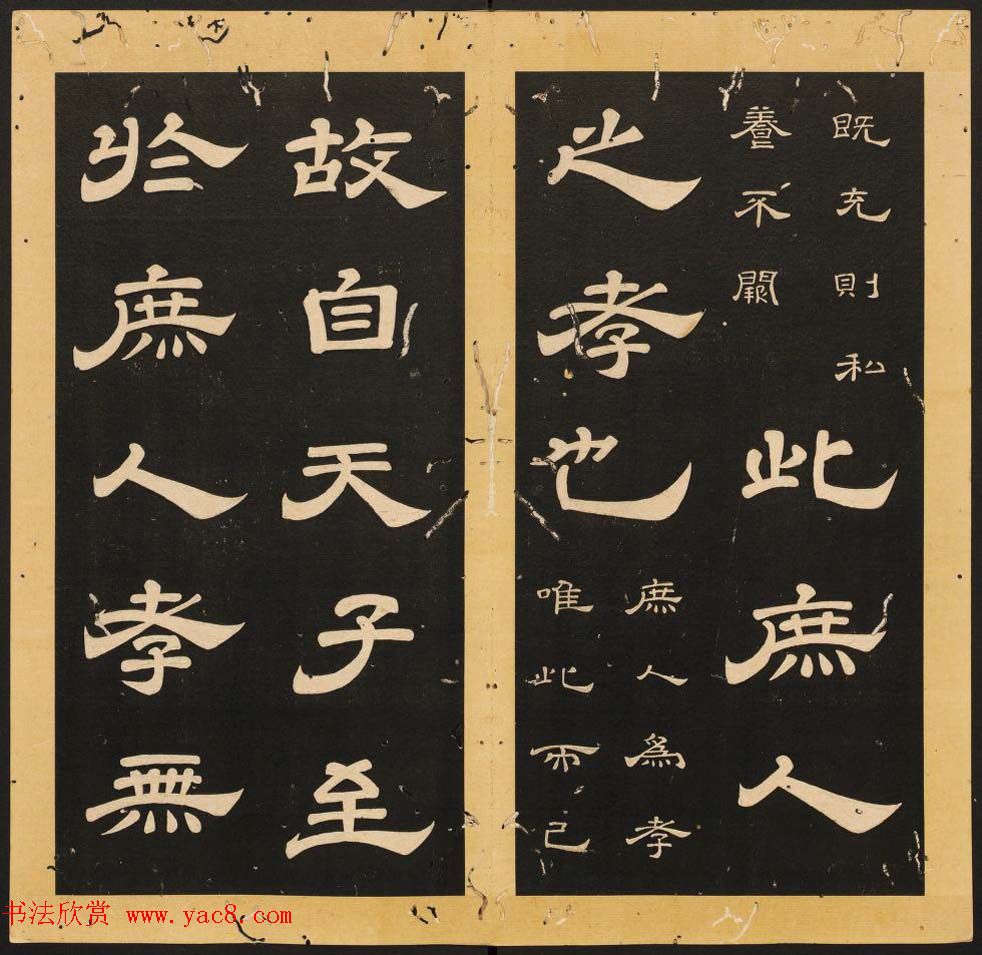 既充則私
養不闕
此庶人
之孝也
庶人為孝
唯此而已
故自天子至
於庶人孝無
书法欣赏 www.yac8.com